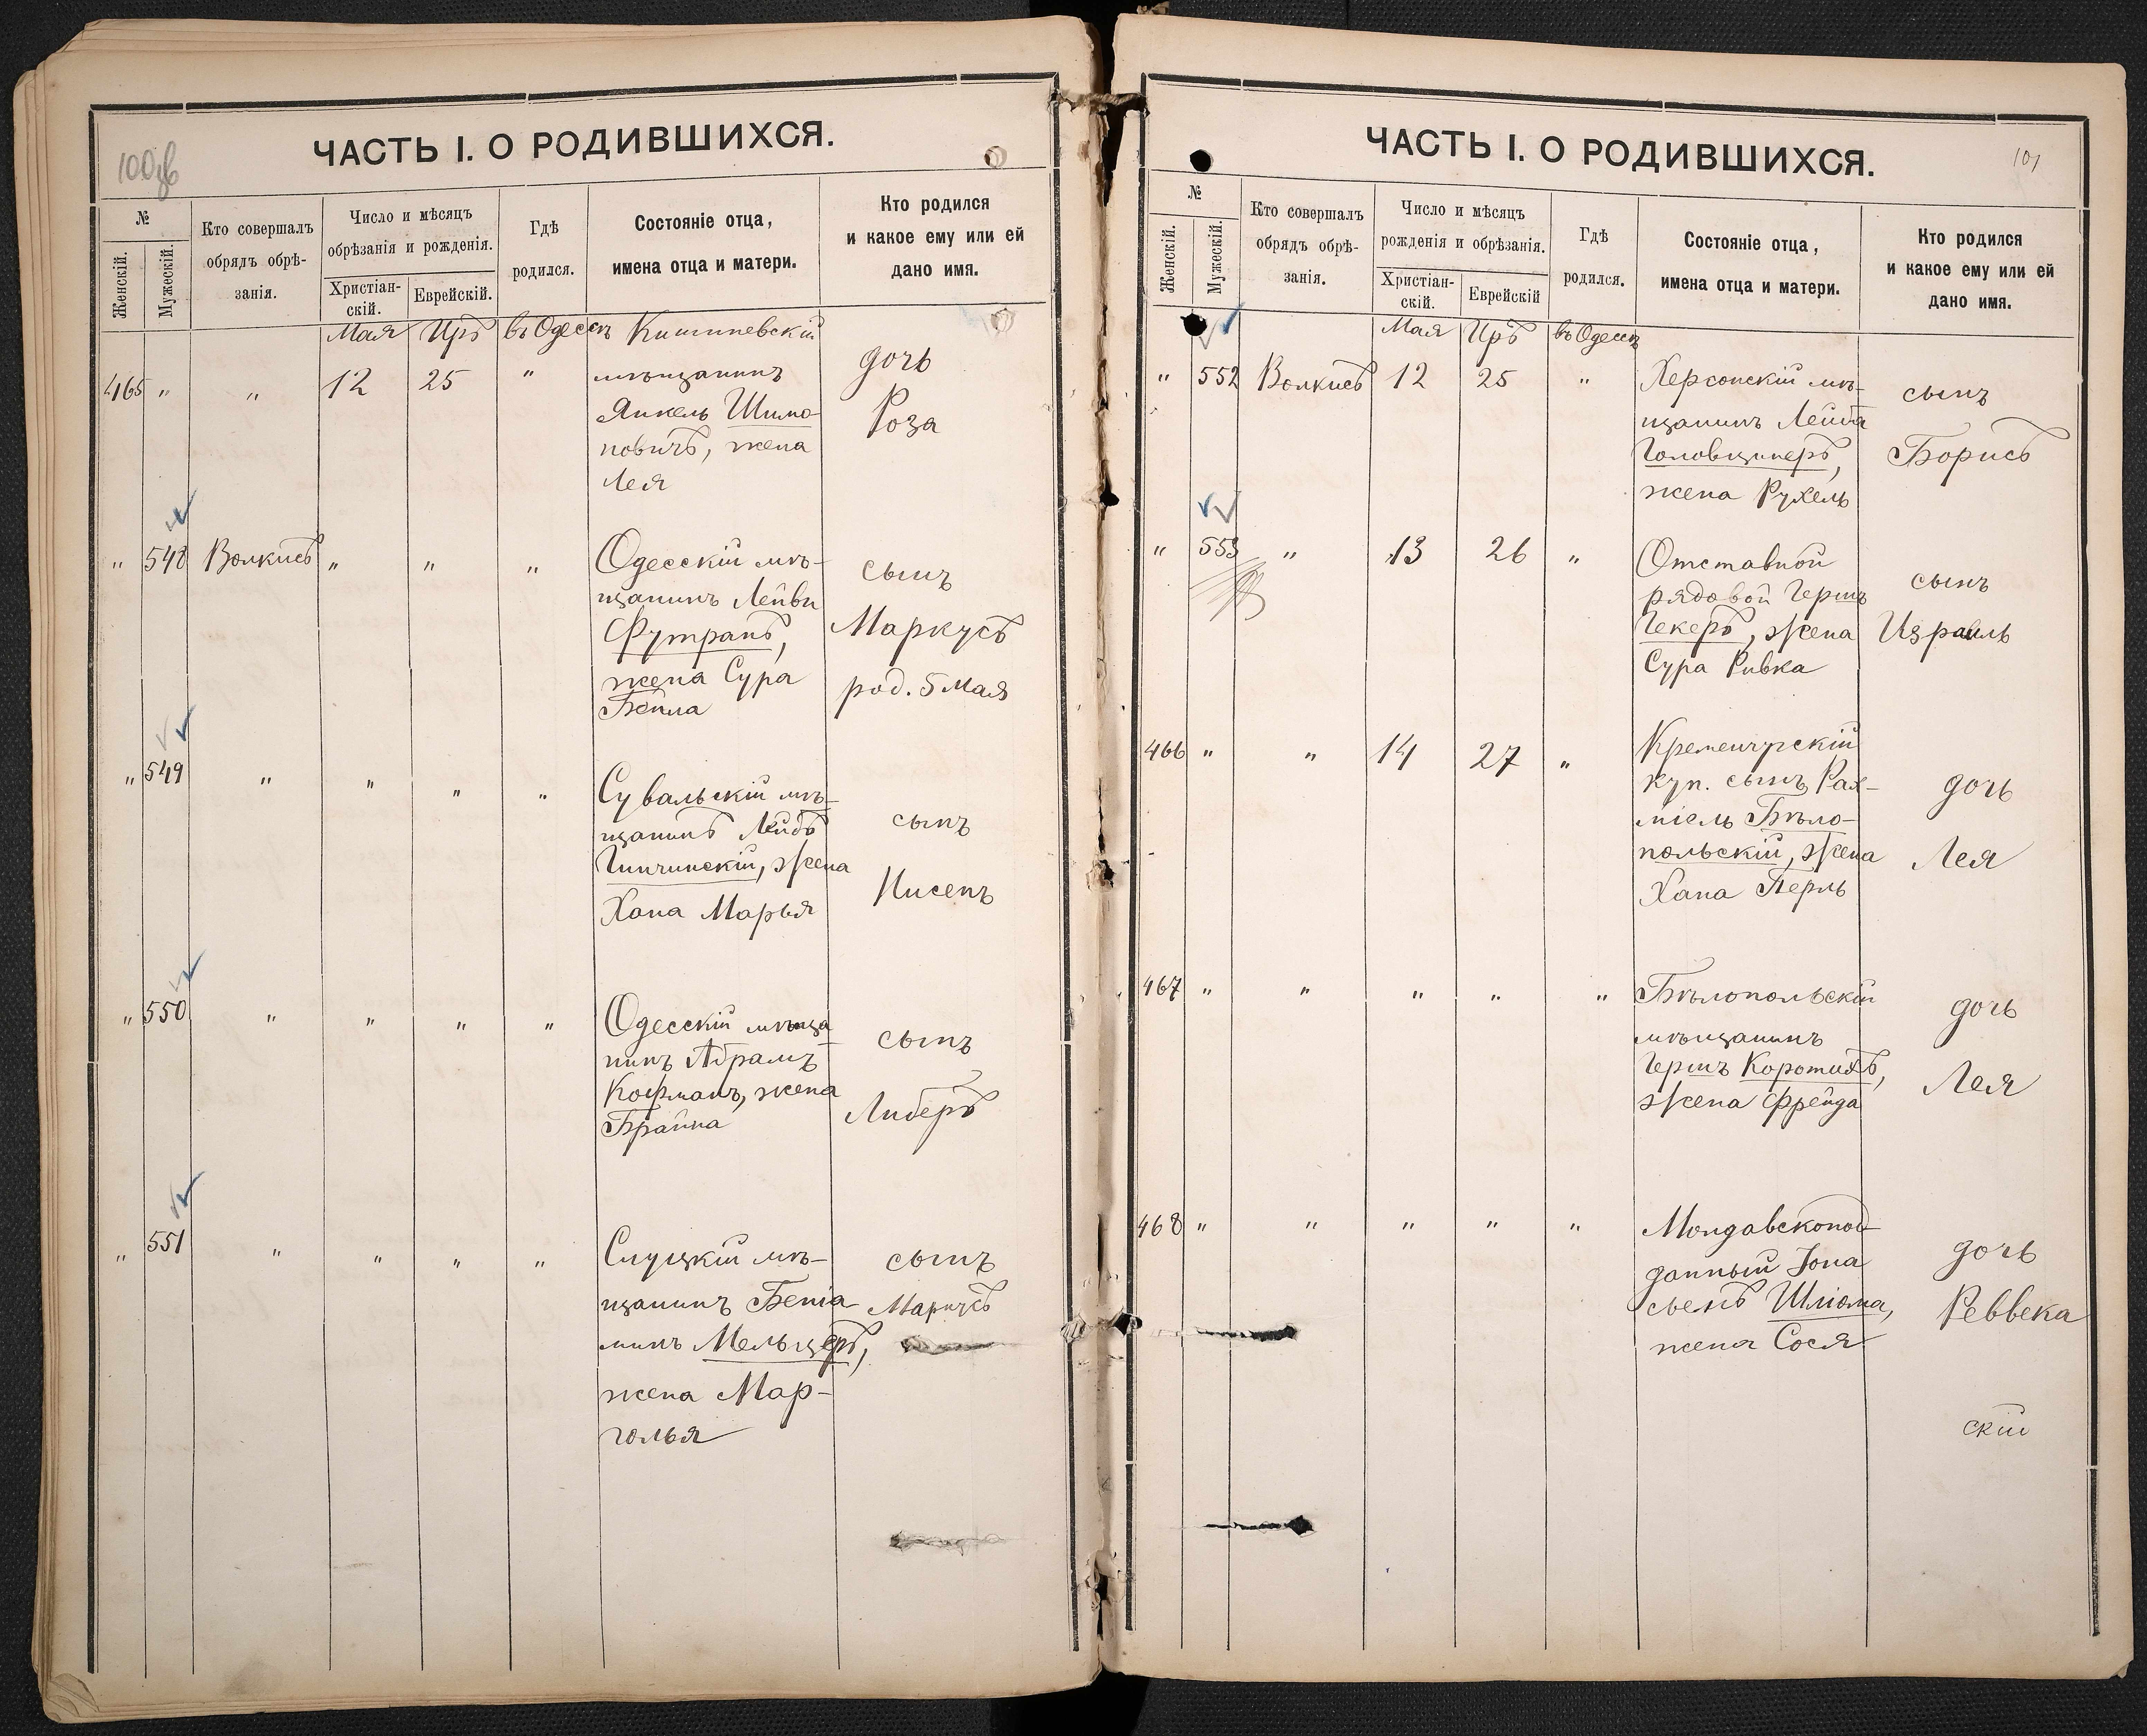 100об
ЧАСТЬ I. О РОДИВШИХСЯ.
№
Женскій.
Мужескій.
Кто совершалъ
обрядъ обрѣ-
занія.
Число и мѣсяцъ
обрѣзанія и рожденія.
Христіан-
скій.
Еврейскій.
Гдѣ
родился.
Состояніе отца,
имена отца и матери.
Кто родился
и какое ему или ей
дано имя.
Мая Иръ въ Одессѣ Кишиневскій
465 " " 12 25 " мѣщанинъ дочь
Янкель Шимо- Роза
новичъ, жена
Лея
" 548 Волкисъ " " " Одесскій мѣ- сынъ
щанинъ Лейви
Футранъ, Маркусъ
жена Сура род. 5 Мая
Бейла
" 549 " " " " Сувальскій мѣ-
щанинъ Лейбъ сынъ
Гинчинскій, жена
Хана Марья Нисенъ
" 550 " " " " Одесскій мѣща- сынъ
нинъ Абрамъ
Кофманъ, жена Либеръ
Брайна
" 551 " " " " Слуцкій мѣ- сынъ
щанинъ Беніа- Маркусъ
минъ Мельцеръ,
жена Мар-
голья
101
ЧАСТЬ I. О РОДИВШИХСЯ.
№
Женскій.
Мужескій.
Кто совершалъ
обрядъ обрѣ-
занія.
Число и мѣсяцъ
рожденія и обрѣзанія.
Христіан-
скій.
Еврейскій
Гдѣ
родился.
Состояніе отца,
имена отца и матери.
Кто родился
и какое ему или ей
дано имя.
Мая Иръ въ Одессѣ
" 552 Волкисъ 12 25 " Херсонскій мѣ- сынъ
щанинъ Лейба
Головщинеръ, Борисъ
жена Рухель
" 553 " 13 26 " Отставной сынъ
рядовой Гершъ
Гекеръ, жена Израиль
Сура Ривка
466 " " 14 27 " Кременчугскій
куп. сынъ Рах- дочь
міель Бѣло-
польскій, жена Лея
Хана Перль
467 " " " " " Бѣлопольскій дочь
мѣщанинъ
Гершъ Коротихъ, Лея
жена Фрейда
468 " " " " " Молдавскопод-
данный Іона дочь
сьенъ Шліома, Реввека
жена Сося
скій